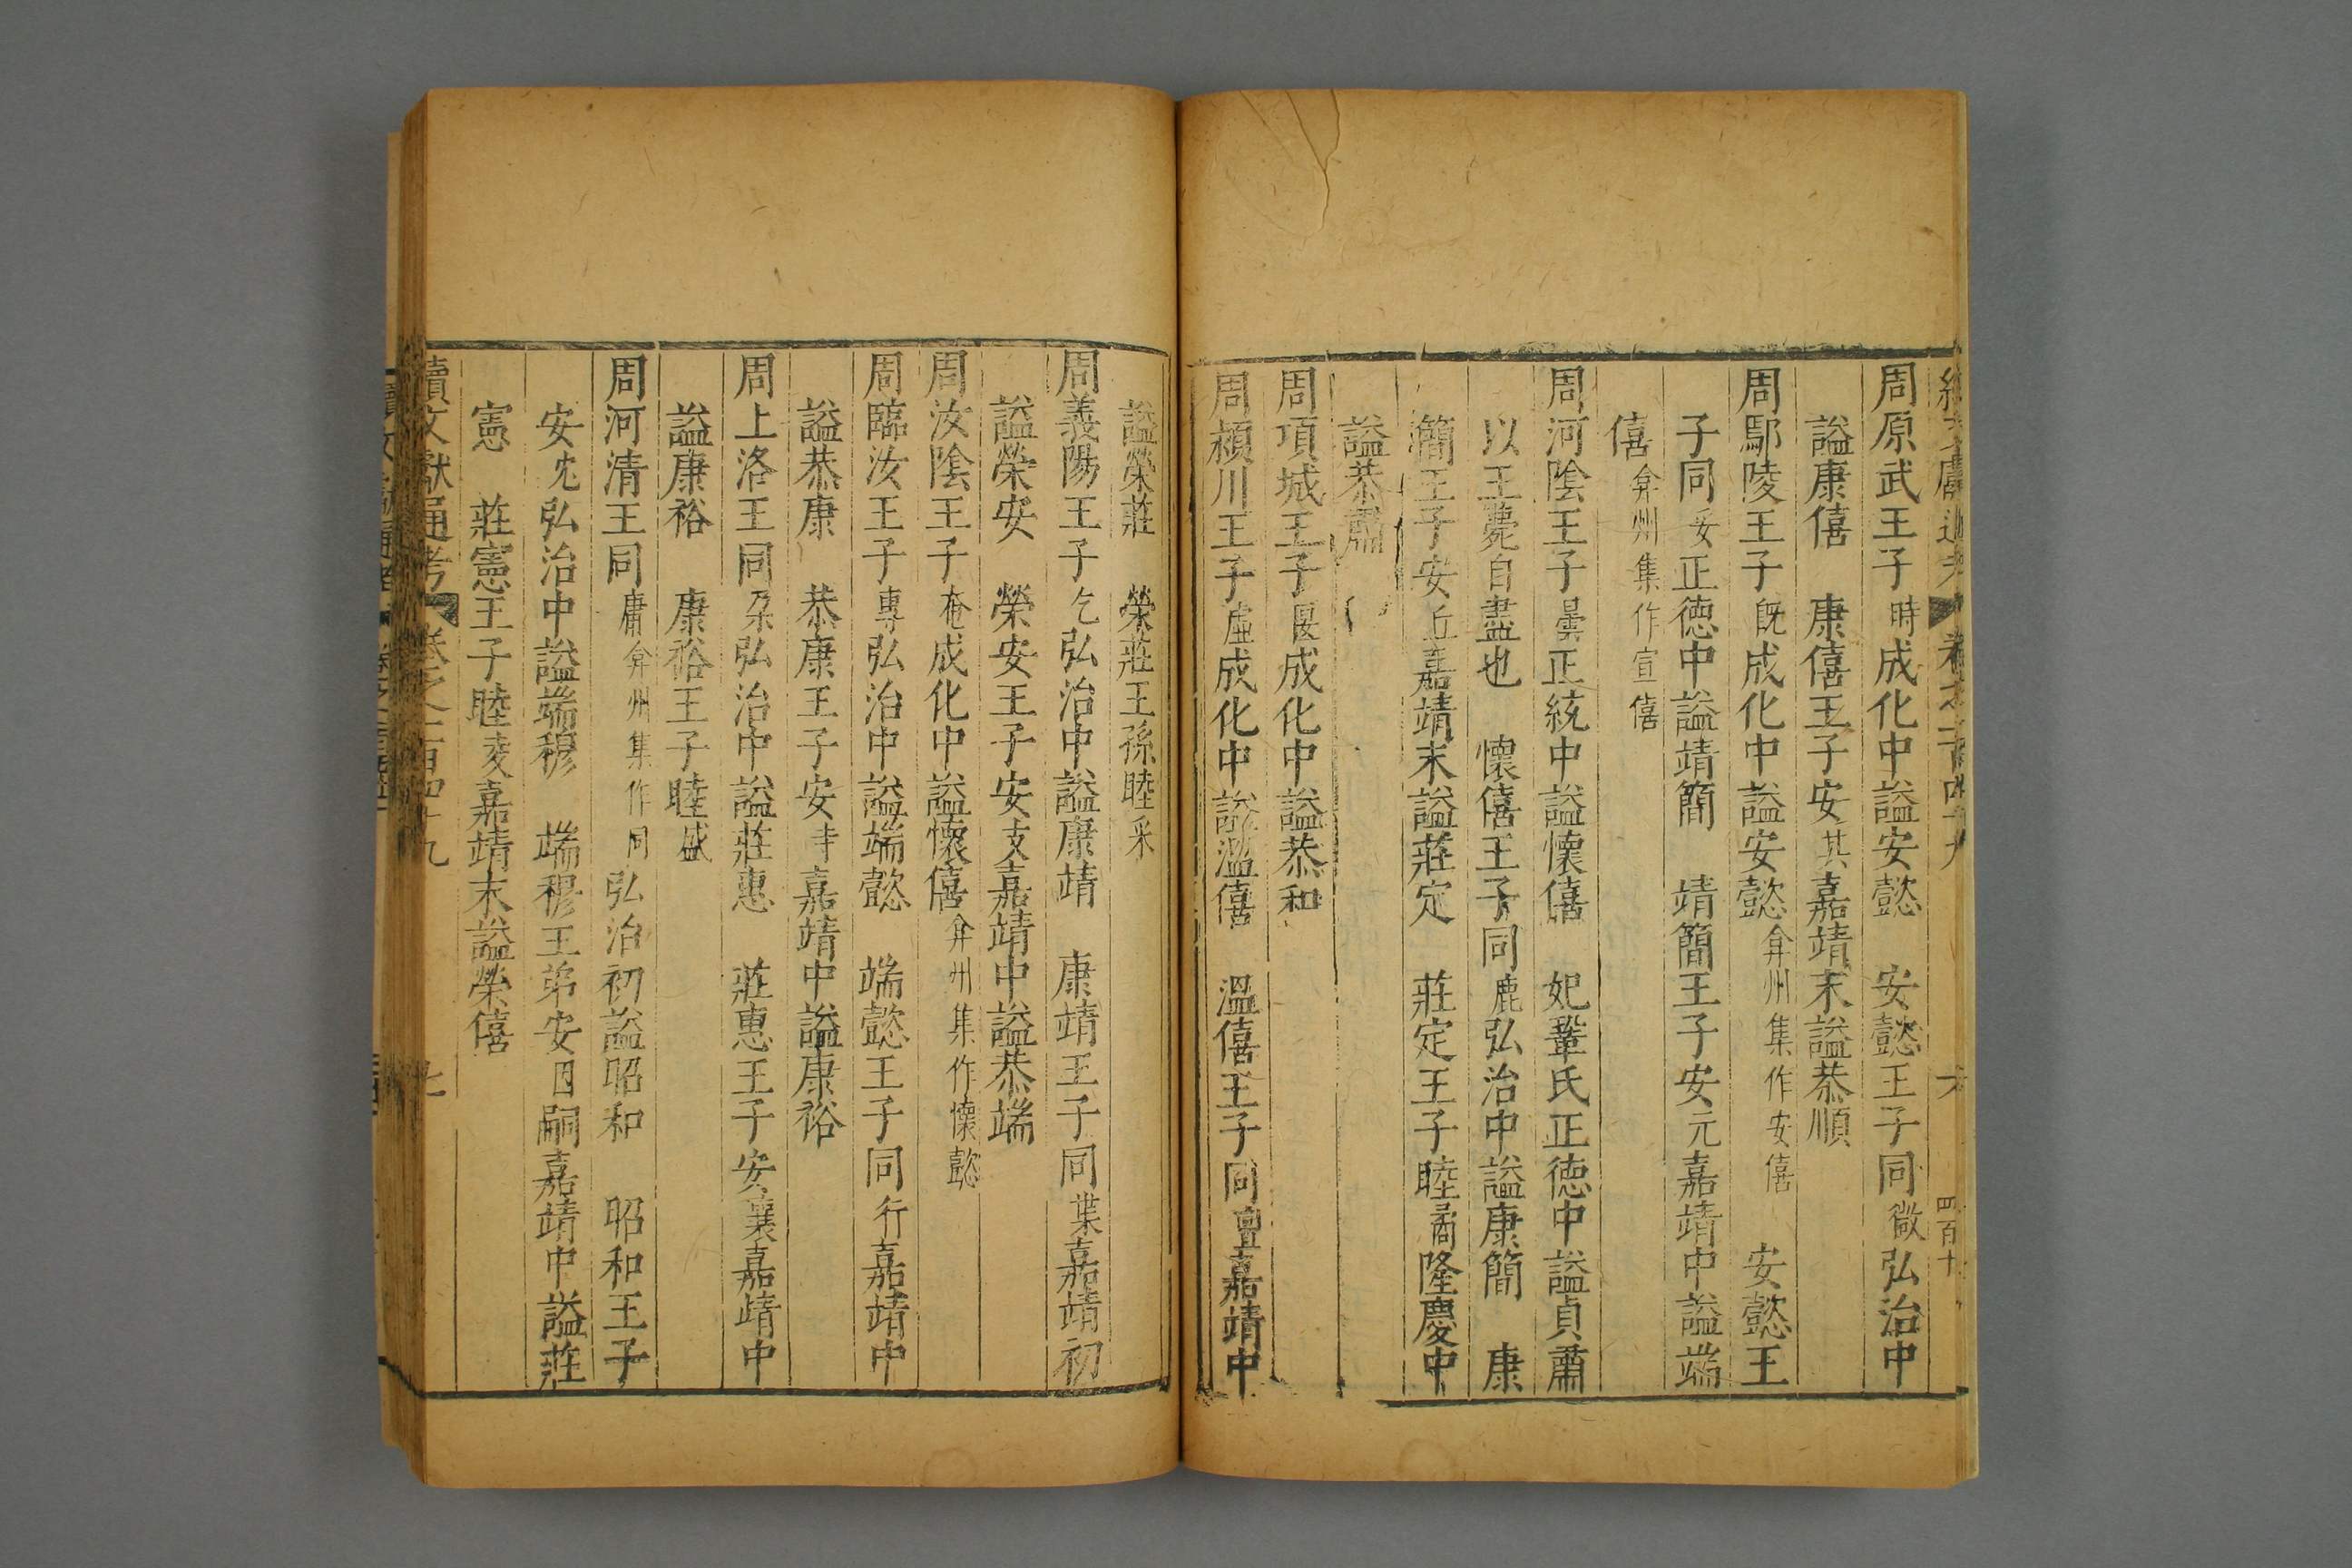 周原武王子時成化中謚安懿　安懿王子同微弘治中
謚康僖　康僖王子安其嘉靖末謚恭順
周鄢陵王子既成化中謚安懿弇州集作安僖　安懿王
子同妥正德中謚靖簡　靖簡王子安元嘉靖中謚端
僖弇州集作宣僖
周河陰王子曇正統中謚懷僖　妃鞏氏正德中謚貞肅
以王薨自盡也　懷僖王子同鹿弘治中謚康簡　康
簡王子安丘嘉靖末謚莊定　莊定王子睦矞隆慶中
謚恭肅
周項城王子㫟成化中謚恭和
周潁川王子虛成化中謚溫僖　溫僖王子同亶嘉靖中
謚榮莊　榮莊王孫睦釆
周義陽王子乞弘治中謚康靖　康靖王子同葉嘉靖初
謚榮安　榮安王子安支嘉靖中謚恭端
周汝陰王子奄成化中謚懷僖弇州集作懷懿
周臨汝王子專弘治中謚端懿　端懿王子同行嘉靖中
謚恭康　恭康王子安丰嘉靖中謚康裕
周上洛王同朶弘治中謚莊惠　莊惠王子安襄嘉靖中
謚康裕　康裕王子睦盛
周河清王同庸弇州集作同弘治初謚昭和　昭和王子
安尤弘治中謚端穆　端穆王弟安因嗣嘉靖中謚莊
憲　莊憲王子睦㚆嘉靖末謚榮僖
續文獻通考　卷之二百四十九　七